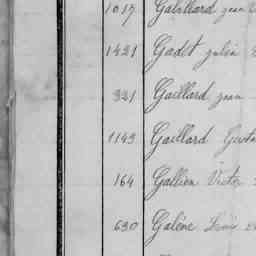 1017 Gabillard Jean
1421 Gadet Julia
321 Gaillard Jean
1143 Gaillard Gusta
164 Gallien Victor
630 Galène